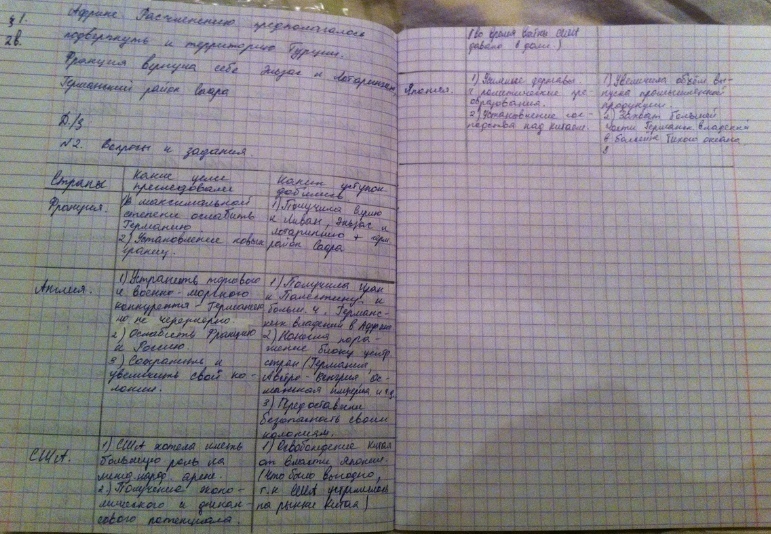 §1.
2в.
Африке. Расчленению предполагалось
подвергнуть и территорию Турции.
Франция вернула себе Эльзас и Лотарингию,
Германский район Саара
Д/з
№2. Вопросы и задания.
Страны
Какие цели
преследовали
Каких уступок
добились
Франция.
1) В максимальной
степени ослабить
Германию.
2) Установление новых
границ.
1) Получила Сирию
и Ливан, Эльзас и
Лотарингию +
район Саара
Англия.
1) Устранить торгового
и военно-морского
конкурента - Германию
но не чрезмерно
2) Ослабить Францию
и Россию
3) Сохранить и
увеличить свои ко-
лонии.
1) Получила Ирак
и Палестину и
больш. ч. Германс-
ких владений в Африке
2) пора-
жение блоку центр.
стран (Германия,
Австро-Венгрия, Ос-
манская империя и т.д.
3) Предоставили
безопасность своим
колониям.
США.
1) США хотела иметь
большую роль на
международ. арене.
2) Получение эконо-
мического и финан-
сового потенциала.
1) Освобождение Китая
от власти Японии.
(Что было выгодно,
т.к США
на рынке Китая)
(Во время войны США
давало в долг.)
Япония.
1)
2) Установление гос-
подства над Китаем.
1) Увеличила объём вы-
пуска промышленной
продукции
2) Захват большей
части Германск. владений
в бассейне Тихого океана